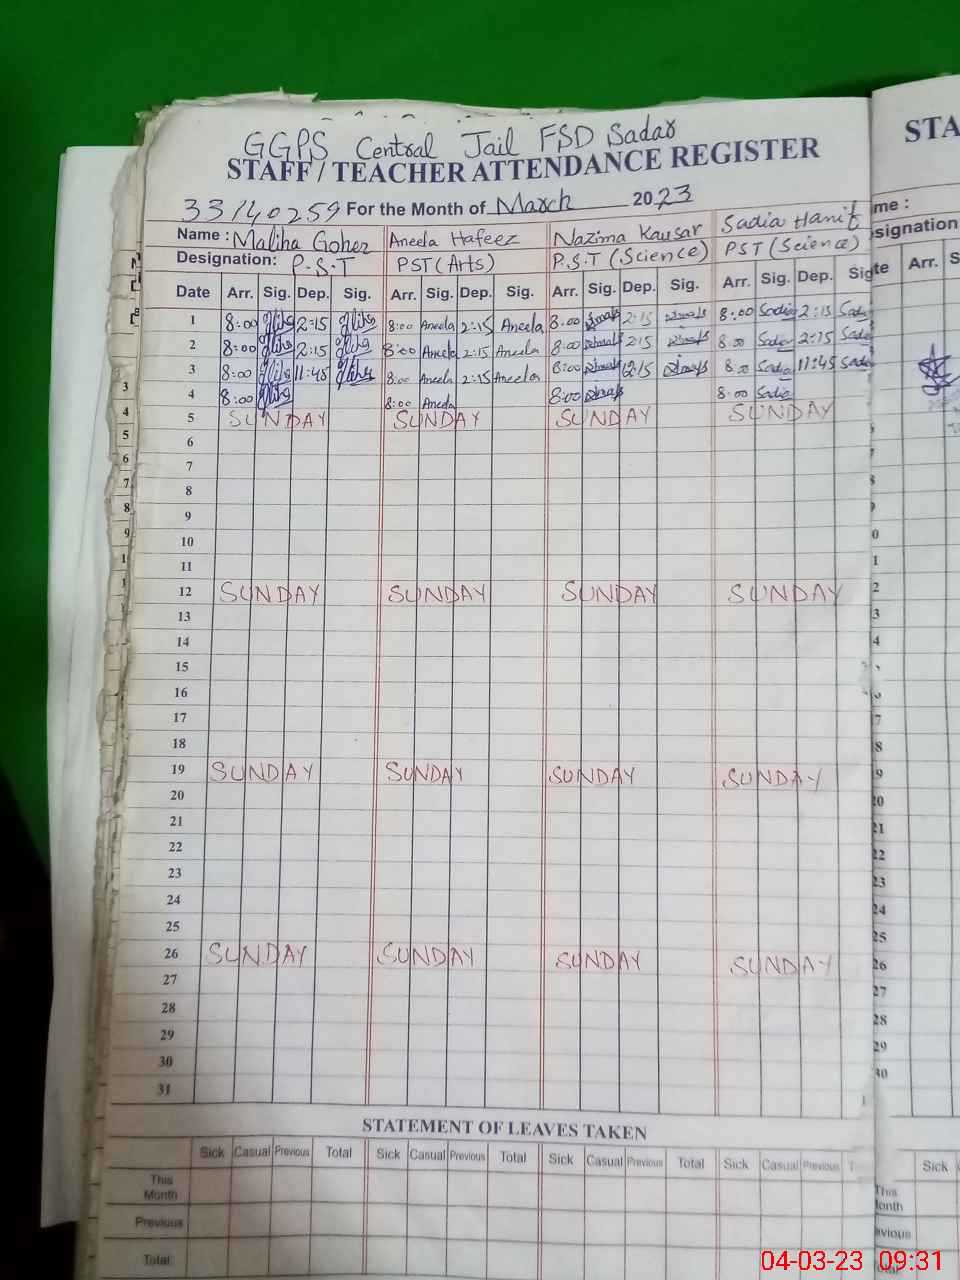 GGPS Central Jail FSD Sadar
STAFF / TEACHER ATTENDANCE REGISTER
33140259 For the Month of March 2023
Name : Maliha Goher Aneela Hafeez Nazima Kausar Sadia Hanif
Designation: P.S.T PST (Arts) P.S.T (Science) PST (Science)
Date Arr. Sig. Dep. Sig. Arr. Sig. Dep. Sig. Arr. Sig. Dep. Sig. Arr. Sig. Dep. Sig
1 8:00 2:15 8:00 Aneela 2:15 Aneela 8:00 2:15 8:00 Sadia 2:15 Sadia
2 8:00 2:15 8:00 Aneela 2:15 Aneela 8:00 2:15 8:00 Sadia 2:15 Sadia
3 8:00 11:45 8:00 Aneela 2:15 Aneela 8:00 12:15 8:00 Sadia 11:45 Sadia
4 8:00 8:00 Aneela 8:00 8:00 Sadia
5 SUNDAY SUNDAY SUNDAY SUNDAY
6
7
8
9
10
11
12 SUNDAY SUNDAY SUNDAY SUNDAY
13
14
15
16
17
18
19 SUNDAY SUNDAY SUNDAY SUNDAY
20
21
22
23
24
25
26 SUNDAY SUNDAY SUNDAY SUNDAY
27
28
29
30
31
STATEMENT OF LEAVES TAKEN
Sick Casual Previous Total Sick Casual Previous Total Sick Casual Previous Total Sick Casual Previous
This
Month
Previous
Total
STA
me :
signation
te Arr. S
Sick
This
onth
evious
04-03-23 09:31